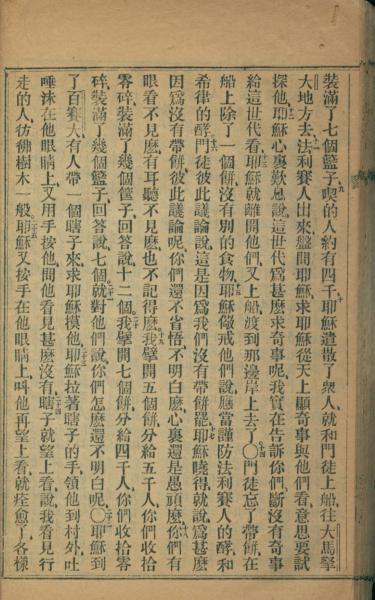 裝滿了七個籃子、九喫的人約有四千、耶穌遣散了衆人、十就和門徒上船、往大馬拏
大地方去、十一法利賽人出來盤問耶穌、求耶穌從天上顯奇事與他們看、意思要試
探他、十二耶穌心裏歎息說、這世代爲甚麽求奇事呢、我實在告訴你們、斷沒有奇事
給這世代看、十三耶穌就離開他們、又上船渡到那邊岸上去了○十四門徒忘了帶餅、在
船上除了一個餅、沒有別的食物、十五耶穌儆戒他們說、應當謹防法利賽人的酵、和
希律的酵、十六門徒彼此議論說、這是因爲我們沒有帶餅罷、十七耶穌曉得就說、爲甚麽
因爲沒有帶餅彼此議論呢、你們還不省悟、不明白麽、心裏還是愚頑麽、十八你們有
眼看不見麽、有耳聽不見麽、也不記得麽、十九我擘開五個餅、分給五千人、你們收拾
零碎、裝滿了幾個筐子、回答說、十二個、二十我擘開七個餅、分給四千人、你們收拾零
碎、裝滿了幾個籃子、回答說、七個、二十一就對他們說、你們怎麽還不明白呢、○二十二耶穌到
了百賽大、有人帶一個瞎子來、求耶穌摸他、二十三耶穌拉著瞎子的手、領他到村外、吐
唾沫在他眼睛上、又用手按他、問他看見甚麽沒有、二十四瞎子就望上看、說、我看見行
走的人、彷彿樹木一般、二十五耶穌又按手在他眼睛上、叫他再望上看、就痊愈了、各樣